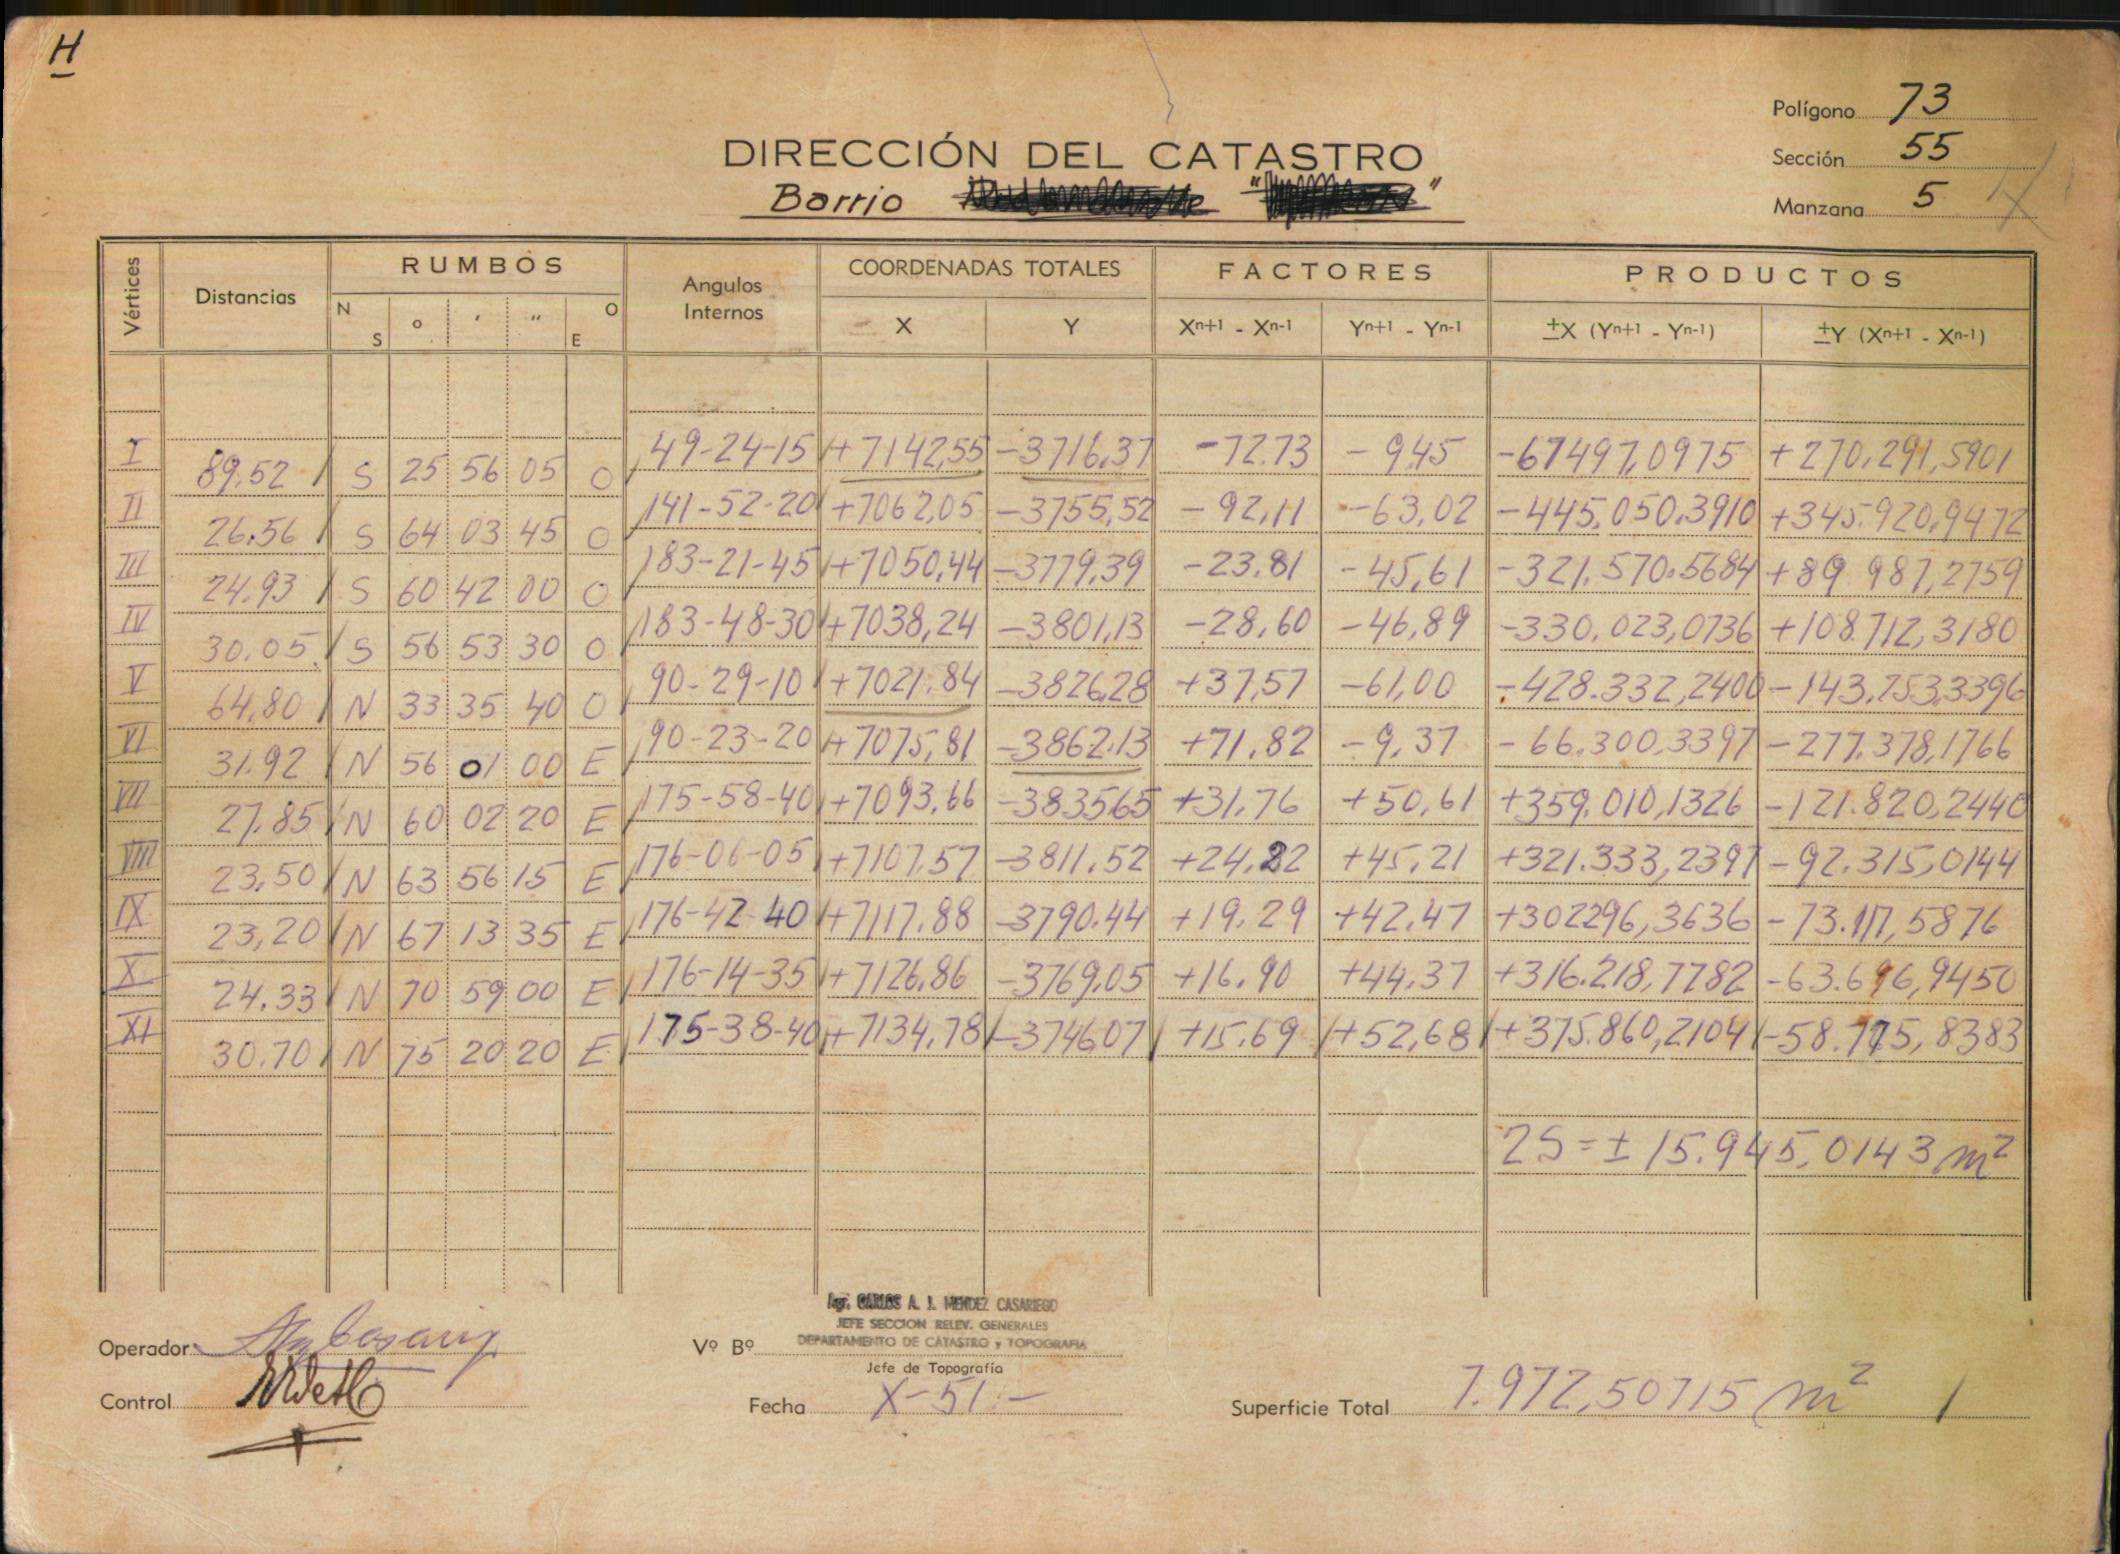 H
Polígono 73
DIRECCIÓN DEL CATASTRO
Sección 55
Barrio " "
Manzana 5
Vértices Distancias RUMBOS Angulos Internos COORDENADAS TOTALES FACTORES PRODUCTOS
N S ° ' " O E X Y Xn+1 - Xn-1 Yn+1 - Yn-1 ±X (Yn+1 - Yn-1) ±Y (Xn+1 - Xn-1)
I 49-24-15 +7142,55 -3716,37 -72.73 -9,45 -67497,0975 +270.291,5901
89,52 S 25 56 05 O
II 141-52-20 +7062,05 -3755,52 -92,11 -63,02 -445.050.3910 +345.920,9472
26.56 S 64 03 45 O
III 183-21-45 +7050,44 -3779,39 -23.81 -45,61 -321.570.5684 +89 987,2759
24.93 S 60 42 00 O
IV 183-48-30 +7038,24 -3801,13 -28,60 -46,89 -330.023,0736 +108.712,3180
30.05 S 56 53 30 O
V 90-29-10 +7021.84 -3826,28 +37,57 -61,00 -428.332,2400 -143.753.3396
64,80 N 33 35 40 O
VI 90-23-20 +7075,81 -3862.13 +71.82 -9,37 -66.300,3397 -277.378,1766
31.92 N 56 01 00 E
VII 175-58-40 +7093,66 -3835,65 +31,76 +50,61 +359.010,1326 -121.820,2440
27.85 N 60 02 20 E
VIII 176-06-05 +7107.57 -3811.52 +24,22 +45,21 +321.333,2397 -92.315,0144
23,50 N 63 56 15 E
IX 176-42 40 +7117.88 -3790.44 +19.29 +42.47 +302296,3636 -73.117,5876
23,20 N 67 13 35 E
X 176-14-35 +7126,86 -3769,05 +16.90 +44,37 +316.218,7782 -63.696,9450
24.33 N 70 59 00 E
XI 175-38-40 +7134,78 -3746,07 +15.69 +52,68 +375.860,2104 -58.775,8383
30.70 N 75 20 20 E
2S = ± 15.945,0143 m²
Agr. CARLOS A. J. MENDEZ CASARIEGO
JEFE SECCION RELEV. GENERALES
Operador Vº Bº DEPARTAMENTO DE CATASTRO y TOPOGRAFIA
Jefe de Topografía
Control Fecha X-51.- Superficie Total 7.972,50715 m²